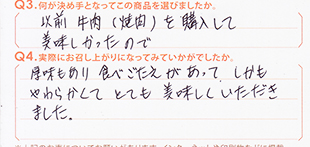 Q3.何が決め手となってこの商品を選びましたか。
以前 牛肉(焼肉)を購入して
美味しかったので
Q4.実際にお召し上がりになってみていかがでしたか。
厚味もあり 食べごたえがあって、しかも
やわらかくて とても 美味しくいただき
ました。